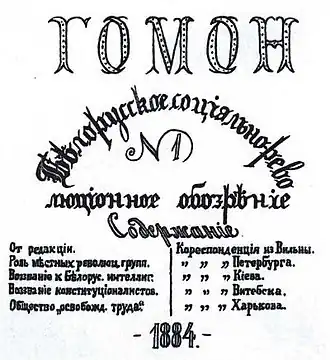 ГОМОН
Бѣлорусское соціально-рево
№ 1
люціонное обозрѣніе
Содержаніе
От редакціи.
Роль мѣстных революц. групп.
Воззванію к Бѣлорус. интеллиг.
Воззваніе конституціоналистов.
Общество „освобожд. труда“
Кореспонденція из Вильны.
„ „ „ Петербурга.
„ „ „ Кіева.
„ „ „ Витебска.
„ „ „ Харькова.
- 1884. -